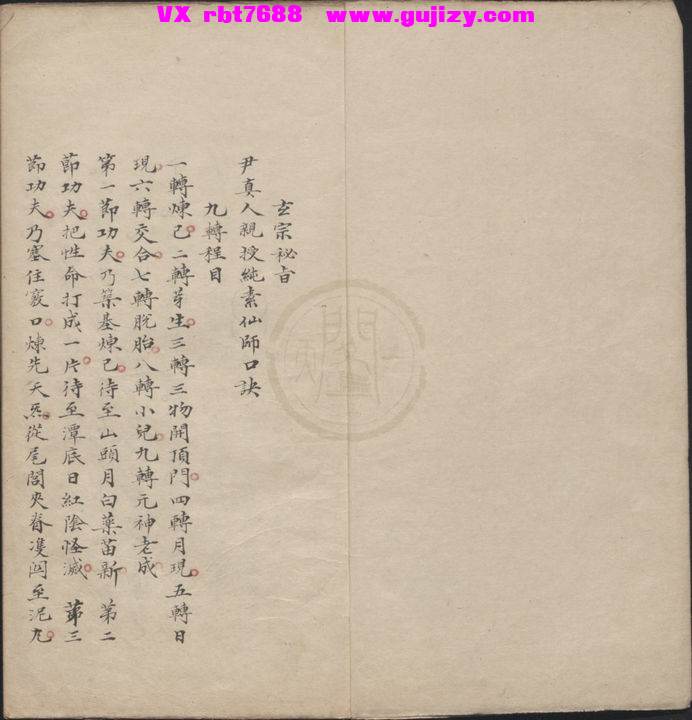 VX rbt7688 www.gujizy.com
玄宗祕旨
尹真人親授純素仙師口訣
九轉程目
一轉煉己二轉芽生三轉三物開頂門四轉月現五轉日
現六轉交合七轉脫胎八轉小兒九轉元神老成
第一節功夫乃築基煉己待至山頭月白藥苗新 第二
節功夫把性命打成一片待至潭底日紅陰怪滅 第三
節功夫乃塞住竅口煉先天炁從尾閭夾脊雙関至泥丸